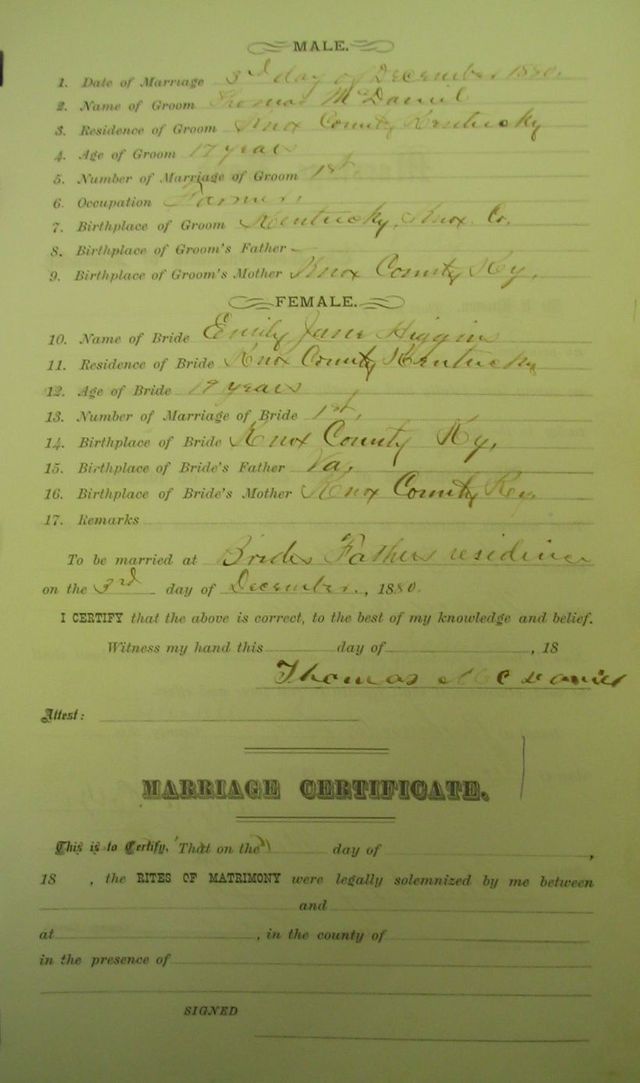 MALE.
1. Date of Marriage 3rd day of December 1880.
2. Name of Groom Thomas McDaniel
3. Residence of Groom Knox County Kentucky
4. Age of Groom 17 years
5. Number of Marriage of Groom 1st
6. Occupation Farmer.
7. Birthplace of Groom Kentucky, Knox Co.
8. Birthplace of Groom's Father —
9. Birthplace of Groom's Mother Knox County Ky.
FEMALE.
10. Name of Bride Emily Jane Higgins
11. Residence of Bride Knox County Kentucky
12. Age of Bride 19 years
13. Number of Marriage of Bride 1st.
14. Birthplace of Bride Knox County Ky.
15. Birthplace of Bride's Father Va.
16. Birthplace of Bride's Mother Knox County Ky.
17. Remarks
To be married at Brides Fathers residence
on the 3rd day of December, 1880.
I CERTIFY that the above is correct, to the best of my knowledge and belief.
Witness my hand this day of , 18
Thomas McDaniel
Attest:
MARRIAGE CERTIFICATE.
This is to Certify, That on the day of ,
18 , the RITES OF MATRIMONY were legally solemnized by me between
and
at , in the county of
in the presence of
SIGNED